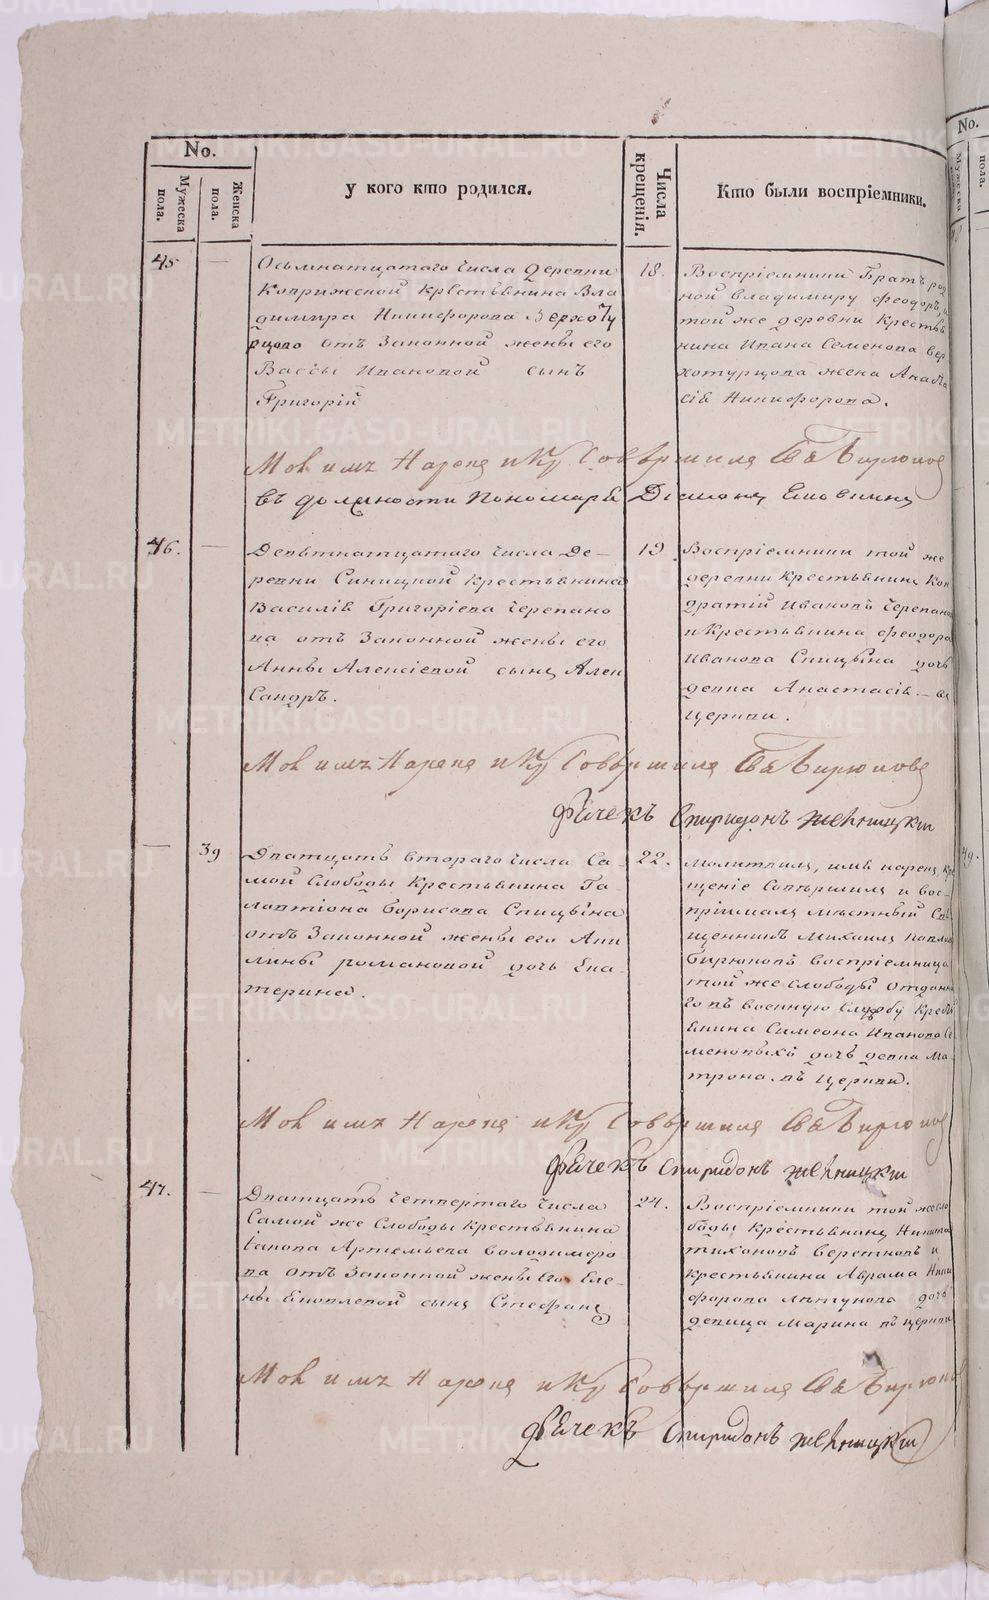 No.
Мужеска пола.
Женска пола.
у кого кто родился.
Числа крещенія.
Кто были воспріемники.
45
—
Осьмнатцатаго числа Деревни
Крестьянина Вла
димира Никифорова Верхоту
рцова отъ Законной жены его
Вассы Ивановой сынъ
Григорій
18.
Воспріемники Братъ род
ной владимиру феодоръ, и
той же деревни Крестья
нина Ивана Семенова вер
хотурцова жена Анаста
сія Никифорова.
Мол имя Нарекъ и Кр Совершилъ Св Бирюковъ
въ должности Пономаря
46.
—
Девятнатцатаго числа Де-
ревни Синицной крестьянина
Василія Григоріева Черепано
ва отъ Законной жены его
Анны Алексіевой сынъ Алек
сандръ.
19
Воспріемники той же
деревни крестьянинъ Кон
дратій Ивановъ Черепанов
и Крестьянина феодора
Иванова Спицына дочь
девка Анастасія — въ
Церкви.
Мол имя Нарекъ и Кр Совершилъ Св Бирюковъ
дьячекъ Спиридонъ
—
39
Дватцать втораго числа Са-
мой Слободы Крестьянина Га-
лактіона Борисова Спицына
отъ Законной жены его Аки-
лины романовой дочь Ека-
терина.
22.
Молитвилъ, имя нарекъ, кре
щеніе Совершилъ и вос-
принималъ мѣстный Свя
щенникъ Михаилъ павловъ
Бирюковъ воспріемница
той же слободы отданна
го въ военную Службу Кресть
янина Симеона Иванова Се
меновыхъ дочь девка Ма-
трона. въ Церкви.
Мол имя Нарекъ и Кр Совершилъ Св Бирюковъ
дьячекъ Спиридонъ
47.
—
Дватцать Четвертаго Числа
Самой же Слободы Крестьянина
Іакова Артемьева Володимеро
ва отъ Законной жены Его Еле-
ны Яковлевой сынъ Стефанъ
24.
Воспріемники той же сло
боды Крестьянинъ Никита
тихоновъ веретновъ и
крестьянина Аврама Ники
форова лятунова дочь
девица Марина въ церкви
Мол имя Нарекъ и Кр Совершилъ Св Бирюковъ
дьячекъ Спиридонъ
No.
Мужеска
пола.
METRIKI.GASO-URAL.RU